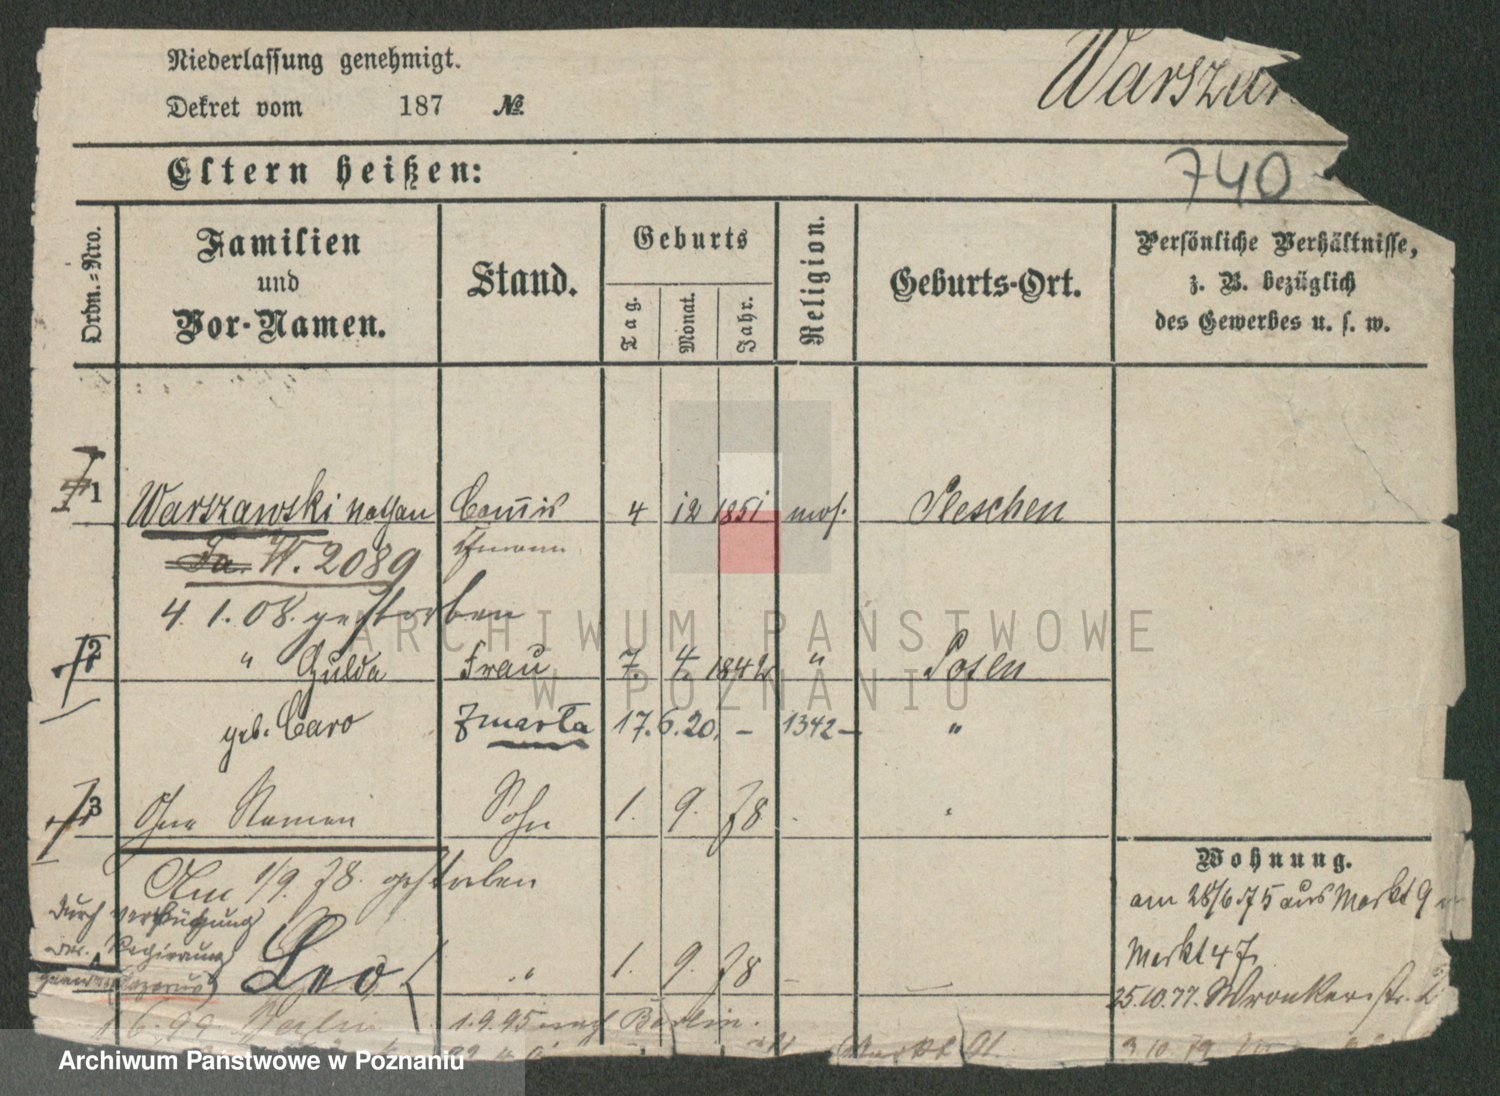 Niederlassung genehmigt.
Dekret vom 187 №
Warszaw
Eltern heißen:
740
Ordn.-Nro.
Familien und Vor-Namen.
Stand.
Geburts
Tag. Monat. Jahr.
Religion.
Geburts-Ort.
Persönliche Verhältnisse, z. B. bezüglich des Gewerbes u. s. w.
1 Warszawski Nathan Commis 4 12 1851 mos. Pleschen
Fa. W. 2089
4. 1. 08. gestorben
2 " Hulda Frau 7. 4. 1842 " Posen
geb. Caro Zmarła 17. 6. 20. - 1342 - "
3 Ohne Namen Sohn 1. 9. 78
Am 1/9. 78. gestorben
Wohnung.
am 28/6 75 aus Markt 9
Markt 47
25.10.77. Wronkerstr.
durch Verfügung
der Regierung
Leo " 1. 9. 78
1.6.99 Berlin 1.9.95 nach Berlin.
3.10.79
ARCHIWUM PAŃSTWOWE
W POZNANIU
Archiwum Państwowe w Poznaniu